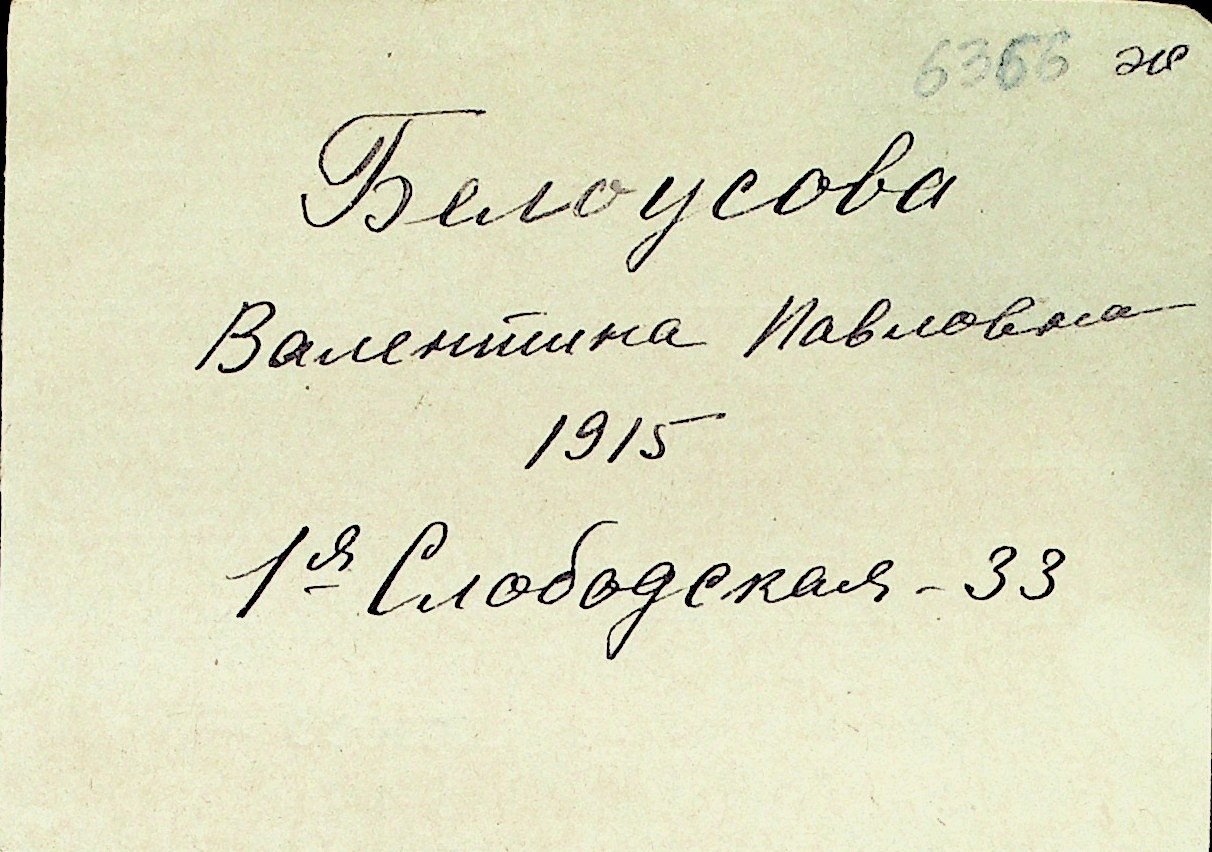 6366 ж
Белоусова
Валентина Павловна
1915
1я Слободская - 33